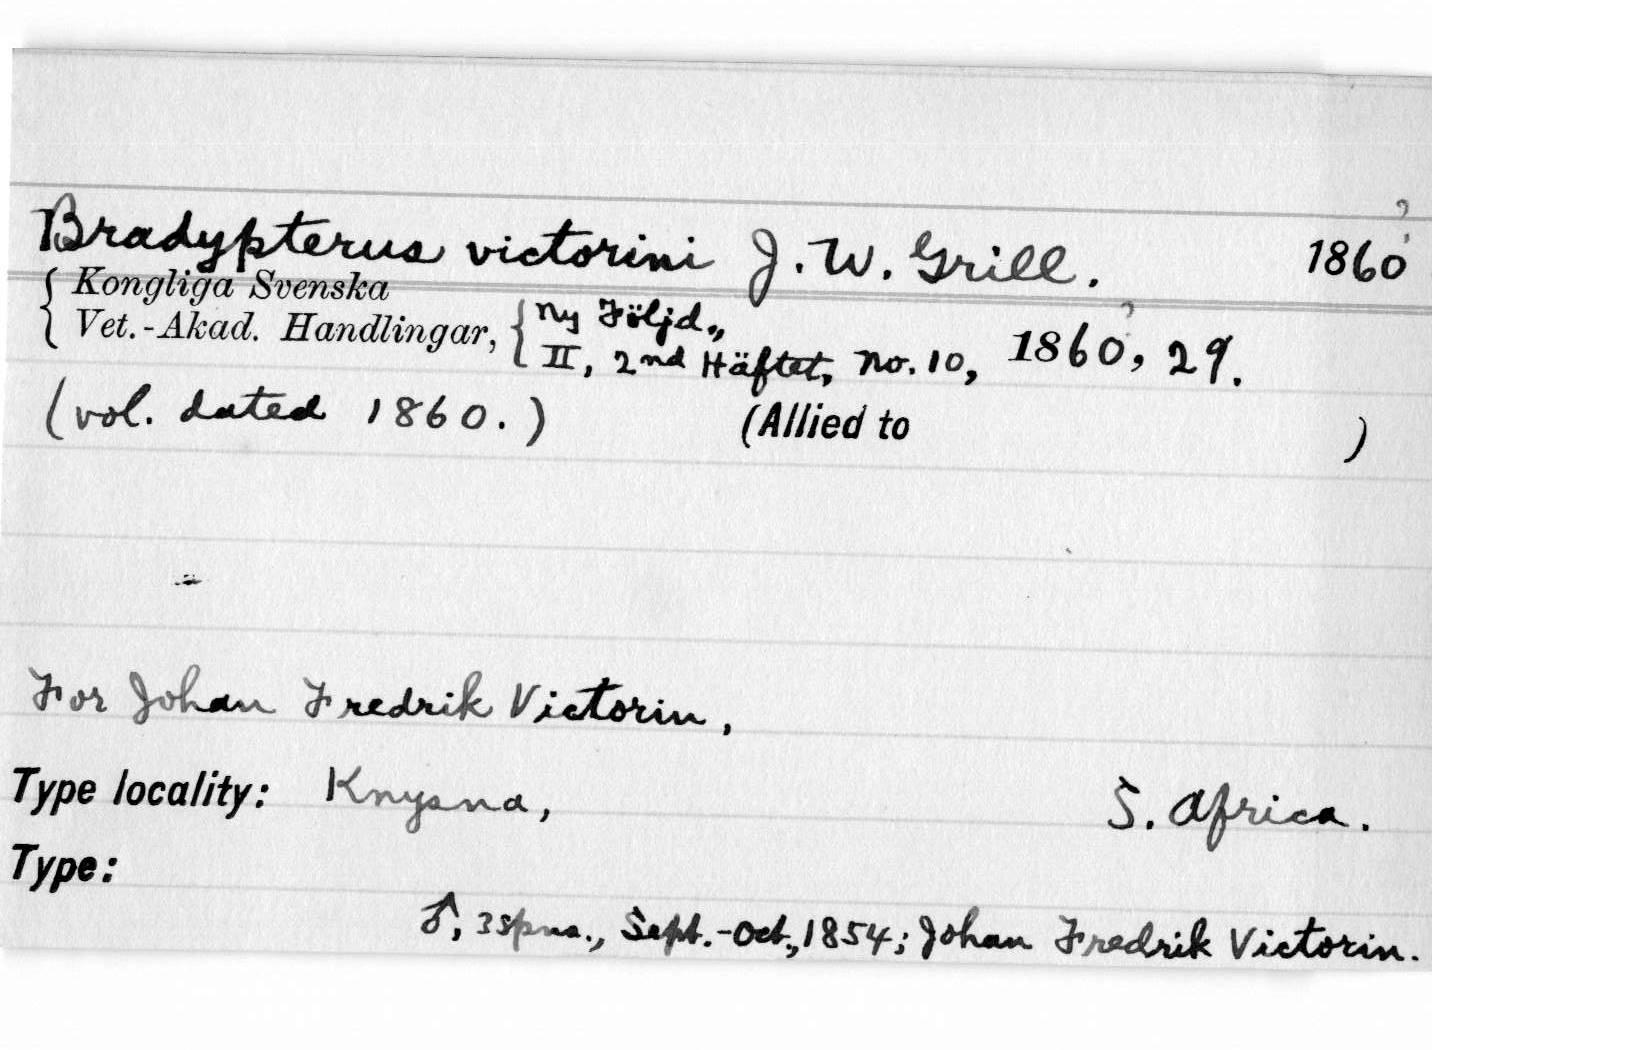 Bradypterus victorini J. W. Grill. 1860?
{ Kongliga Svenska
{ Vet.-Akad. Handlingar, { Ny Följd.,
{ II, 2nd Häftet, No. 10, 1860?, 29.
(vol. dated 1860.) (Allied to )
For Johan Fredrik Victorin,
Type locality: Knysna, S. Africa.
Type:
♂, 3 spns., Sept.-Oct., 1854; Johan Fredrik Victorin.